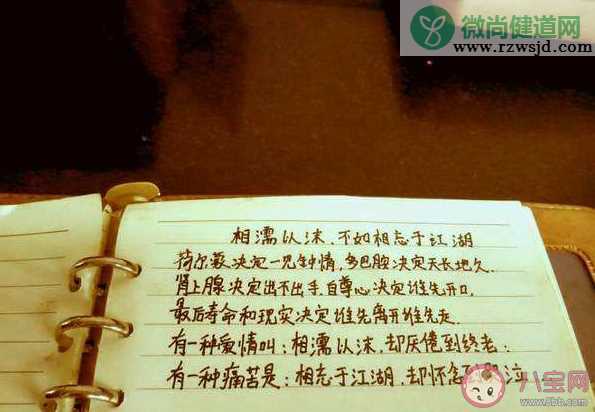 微尚健道网
www.rzwsjd.com
相濡以沫，不如相忘于江湖
荷尔蒙决定一见钟情，多巴胺决定天长地久.
肾上腺决定出不出手，自尊心决定谁先开口.
最后寿命和现实决定谁先离开谁先走.
有一种爱情叫：相濡以沫，却厌倦到终老；
有一种痛苦是：相忘于江湖，却怀念 泣
八宝网
www.8bb.com